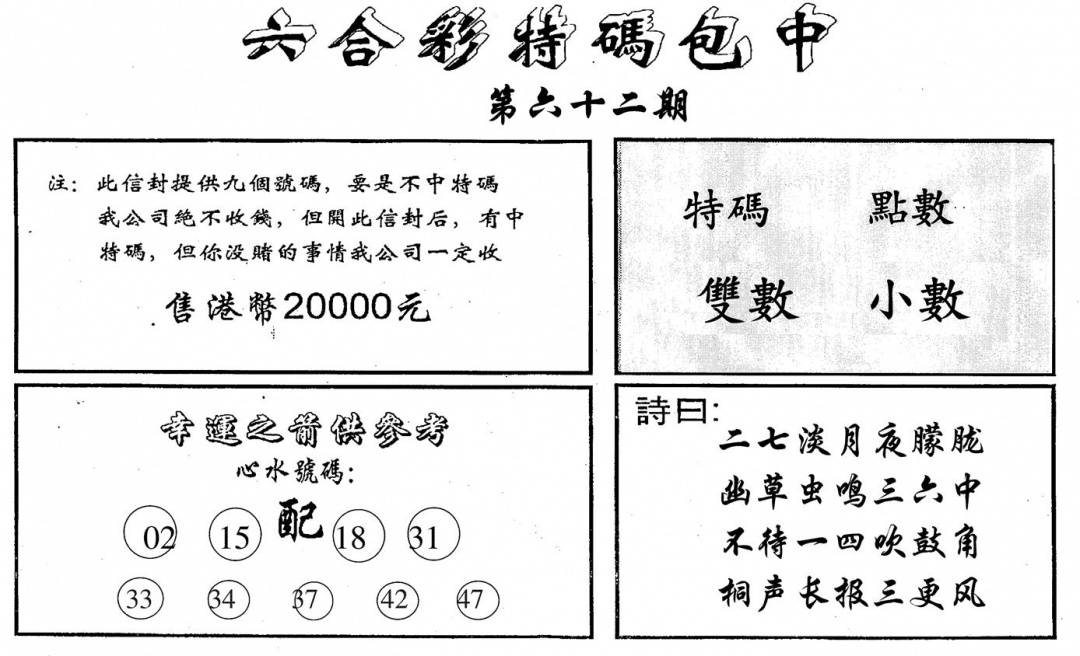 六合彩特碼包中
第六十二期
注：此信封提供九個號碼，要是不中特碼
我公司絕不收錢，但開此信封后，有中
特碼，但你没賭的事情我公司一定收
售港幣20000元
特碼 點數
雙數 小數
幸運之箭供參考
心水號碼：
配
02 15 18 31
33 34 37 42 47
詩曰：
二七淡月夜朦胧
幽草虫鸣三六中
不待一四吹鼓角
桐声长报三更风